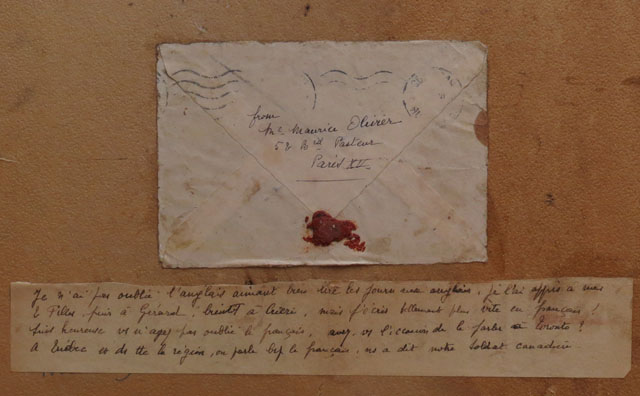 from
Me Maurice Olivier
58 Bld Pasteur
Paris XV
Je n'ai pas oublié l'anglais aimant bien lire les journaux anglais, je l'ai appris à mes
2 filles, puis à Gérard, bientôt à mais j'écris tellement plus vite en français!
suis heureuse vs n'ayez pas oublié le français, avez vs l'occasion de le parler à Toronto?
A Québec et ds tte la région, on parle bcp le français, ns a dit notre soldat canadien